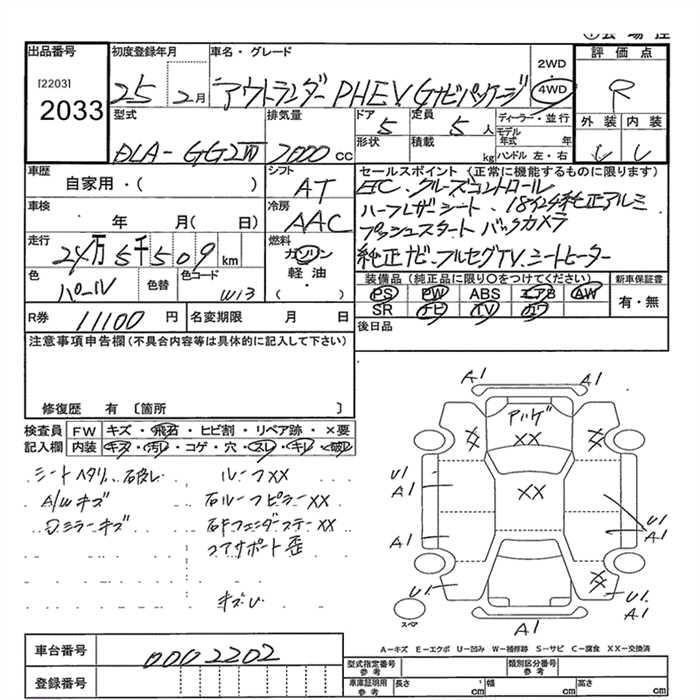 出品番号
[2203]
2033
初度登録年月
25 2月
車名・グレード
アウトランダーPHEV Gナビパッケージ
2WD
4WD
評価点
R
外装 内装
型式
DLA-GG2W
排気量
2000 cc
ドア
5
定員
5 人
形状
積載
kg
ディーラー・並行
モデル年式 年
ハンドル 左・右
車歴
自家用・( )
シフト
AT
セールスポイント (正常に機能するものに限ります)
ETC. クルーズコントロール
ハーフレザーシート. 18インチ純正アルミ
プッシュスタート バックカメラ
純正ナビ フルセグTV. シートヒーター
車検
年 月( 日)
冷房
AAC
走行
24万5千509 km
燃料
ガソリン
軽油
( )
色
パール
色替
色コード
W13
装備品(純正品に限り○をつけてください)
PS PW ABS エアB AW
SR ナビ TV カワ
新車保証書
有・無
R券 11100 円
名変期限 月 日
後日品
注意事項申告欄(不具合内容等は具体的に記入して下さい)
修復歴 有 〔箇所 〕
検査員記入欄
FW キズ・飛石・ヒビ割・リペア跡・×要
内装 キズ・汚レ・コゲ・穴・スレ・キレ・破レ
シートヘタリ. 破レ
A/Wキズ
ミラーキズ
ルーフXX
右ルーフピラーXX
右Fフェンダステー XX
コアサポート歪
キズU
A1
A1
アハゲ
XX
XX
XX
U1
A1
XX
U1
A1
A1
XX
U1
U1.
スペ
A1
A―キズ E―エクボ U―凹み W―補修跡 S―サビ C―腐食 XX―交換済
車台番号
0002202
登録番号
型式指定番号
参考
類別区分番号
参考
車庫証明用
参考
長さ cm
幅 cm
高さ cm